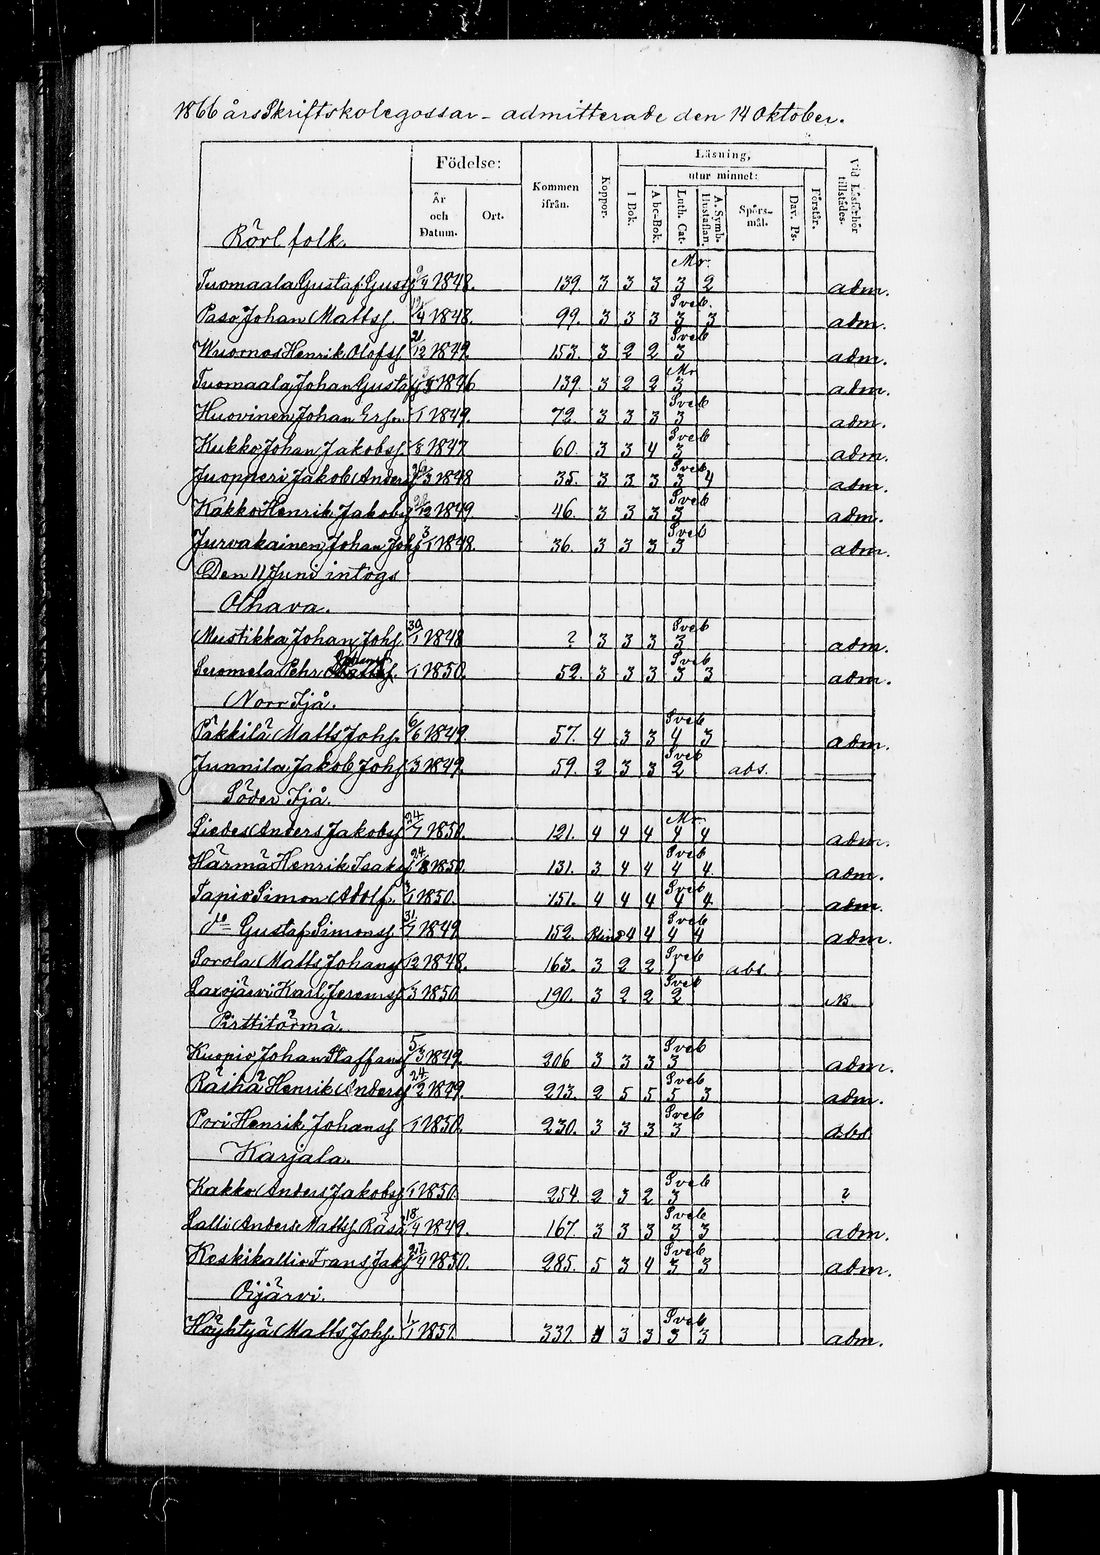 1866 års Skriftskolegossar - admitterade den 14 Oktober.
Födelse: Kommen ifrån. Koppor. Läsning, Vid Läsförhör tillstädes.
utur minnet:
År och Datum. Ort. I Bok. Abc-Bok. Luth. Cat. A. Symb. Hustaflan. Spörs-mål. Dav. Ps. Förstår.
Rörl folk.
Mr.
Tuomaala Gustaf Gustfs 1848. 139. 3 3 3 3 2 adm.
Sveb.
Paso Johan Mattsf. 1848. 99. 3 3 3 3 3 adm.
Sveb
Wuornos Henrik Olofsf 21/12 1849 153. 3 2 2 3 adm.
Mr
Tuomaala Johan Gustafs 1846 139. 3 2 2 3 adm.
Sveb
Huovinen Johan Ersson /1 1849. 72. 3 3 3 3 adm.
Sveb
Kukko Johan Jakobsf /8 1847 60. 3 3 4 3 adm.
Sveb
Juopperi Jakob Anders 1848 35. 3 3 3 3 4 adm.
Sveb
Kakko Henrik Jakobs /12 1849 46. 3 3 3 3 adm.
Sveb
Jurvakainen Johan Johs 3/1 1848. 36. 3 3 3 3 adm.
Den 11 Juni intogs
Olhava.
Sveb
Mustikka Johan Johf 30/1 1848 ? 3 3 3 3 adm.
Sveb
Suomela Pehr /1 1850. 52. 3 3 3 3 3 adm.
Norr Ijå.
Sveb
Päkkilä Matts Johf. 6/6 1849. 57. 4 3 3 4 3 adm.
Sveb
Junnila Jakob Johf /3 1849. 59. 2 3 3 2 abs.
Söder Ijå.
Mr.
Liedes Anders Jakobsf 24/7 1850. 121. 4 4 4 4 4 adm.
Sveb
Härmä Henrik Isaks 24/8 1850. 131. 3 4 4 4 4. adm.
Sveb
Tapio Simon Adolf. /1 1850. 151. 4 4 4 4 4 adm.
Sveb
do Gustaf Simonsf 31/7 1849 152. Blind 4 4 4 4 adm.
Sveb
Sorola Matts Johansf /12 1848. 163. 3 2 2 1 abs
Sveb
Laxojärvi Karl Jeremsf /3 1850. 190. 3 2 2 2 NB
Pirttitörmä.
Sveb
Kuopio Johan Staffans 5/3 1849. 206 3 3 3 3 adm.
Sveb
Räihä Henrik Andersf 24/2 1849. 213. 2 5 5 5 3 adm.
Sveb
Pori Henrik Johansf /1 1850. 230. 3 3 3 3 abs
Karjala.
Sveb
Kakko Anders Jakobsf /1 1850 254 2 3 2 3 ?
Sveb
Lalli Anders Mattsf Räsä 18/4 1849. 167. 3 3 3 3 3 adm.
Sveb
Keskikallio Frans Jakf 27/4 1850. 285. 5 3 4 3 3 adm.
Oijärvi.
Sveb
Höyhtyä Matts Johf. 1/1 1851. 331. 3 3 3 3 adm.